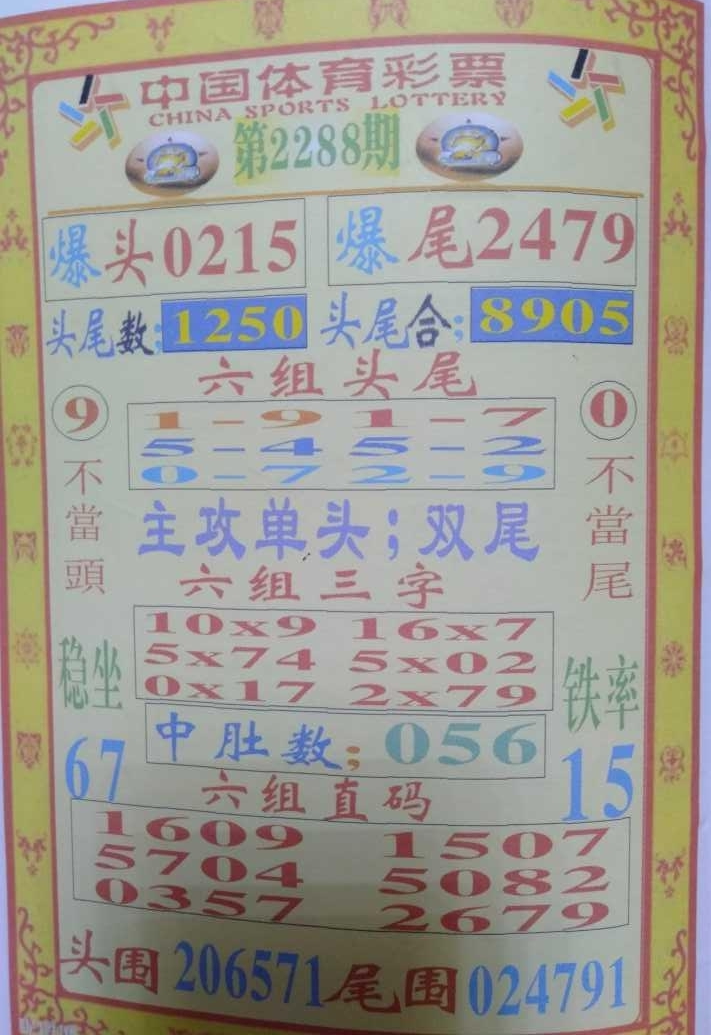 中国体育彩票
CHINA SPORTS LOTTERY
第2288期
爆头0215 爆尾2479
头尾数;1250 头尾合;8905
六组头尾
9不當頭
0不當尾
1-9 1-7
5-4 5-2
0-7 2-9
主攻单头;双尾
六组三字
10x9 16x7
5x74 5x02
0x17 2x79
稳坐67
铁率15
中肚数;056
六组直码
1609 1507
5704 5082
0357 2679
头围206571尾围024791